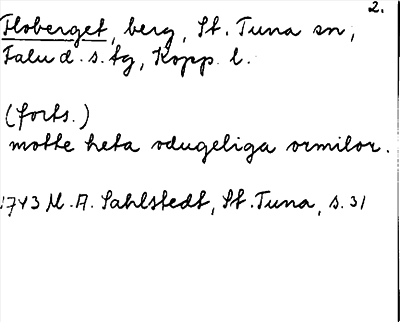 2.
Floberget, berg, St. Tuna sn,
Falu d. s. fg, Kopp. l.
(forts.)
motte heta odugeliga ormilor.
1743 M. A. Sahlstedt, St. Tuna, s. 31